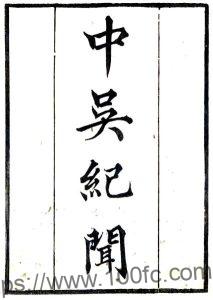 中吳紀聞
ps://www.100fc.com